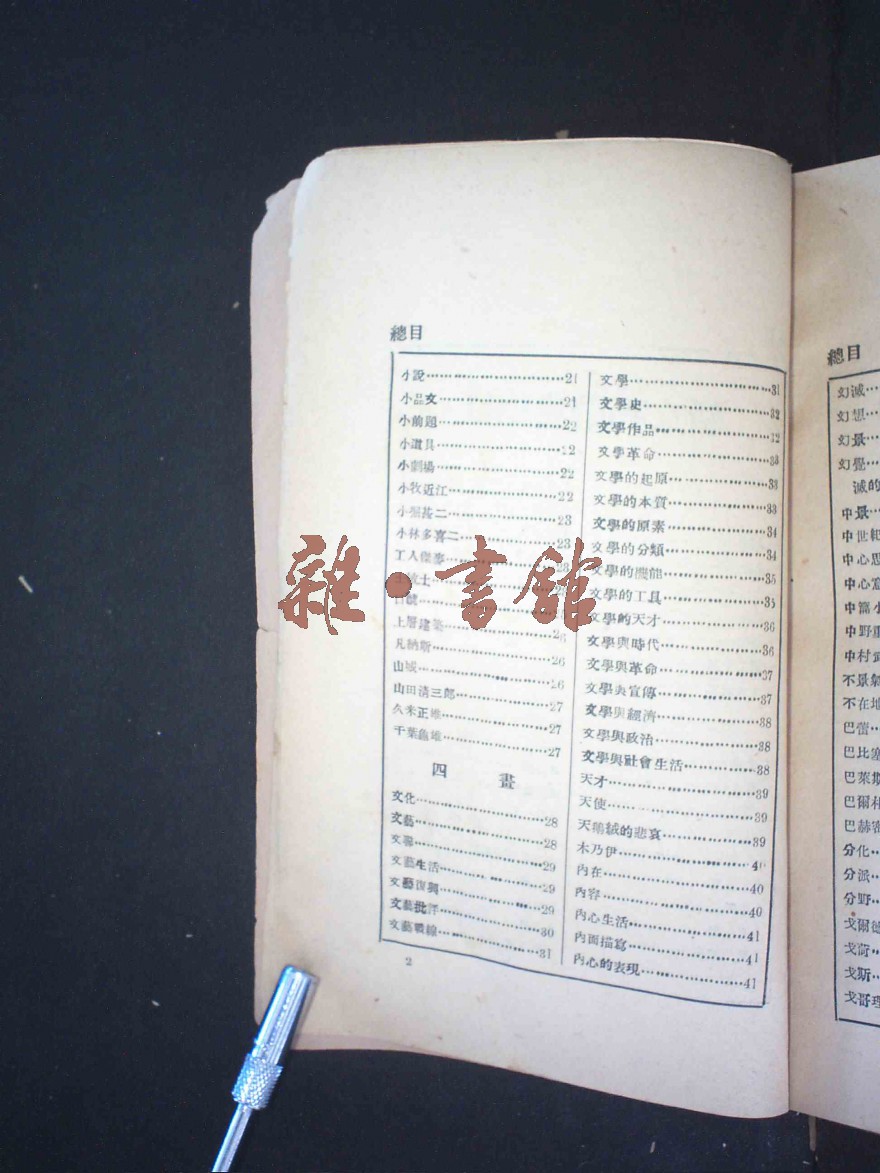 總目
小說 21
小品文 21
小前題 22
小道具 12
小劇場 22
小牧近江 22
小堀甚二 23
小林多喜二 23
工人傑麥 23
上層建築 26
凡納斯 26
山城 26
山田清三郎 27
久米正雄 27
千葉龜雄 27
四 畫
文化 28
文藝 28
文藝生活 29
文藝復興 29
文藝批評 30
文藝戰線 31
文學 31
文學史 32
文學作品 12
文學革命 33
文學的起原 33
文學的本質 33
文學的原素 34
文學的分類 34
文學的機能 35
文學的工具 35
文學的天才 36
文學與時代 36
文學與革命 37
文學與宣傳 37
文學與經濟 38
文學與政治 38
文學與社會生活 38
天才 39
天使 39
天鵝絨的悲哀 39
木乃伊 40
內在 40
內容 40
內心生活 41
內面描寫 41
內心的表現 41
2
雜·書館
總目
幻滅
幻想
幻景
幻覺
滅的
中景
中世紀
中心思
中心
中篇小
中野重
中村武
不景氣
不在地
巴蕾
巴比塞
巴萊斯
巴爾
巴赫
分化
分派
分野
戈爾德
戈斯
戈哥理